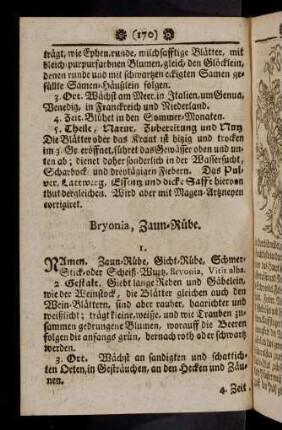 (170)
trägt, wie Epheu, runde, milchsafftige Blätter, mit
bleich-purpurfarbnen Blumen, gleich den Glöcklein,
denen runde und mit schwartzen eckigten Samen ge-
füllte Samen-Häußlein folgen.
3. Ort. Wächst am Meer in Italien, um Genua,
Venedig, in Franckreich und Niederland.
4. Zeit. Blühet in den Sommer-Monaten.
5. Theile, Natur, Zubereitung und Nutz
Die Blätter oder das Kraut ist hitzig und trocken
im 3. Gr. eröffnet, führet das Gewässer oben und un-
ten ab; dienet daher sonderlich in der Wassersucht,
Scharbock und dreytägigen Fiebern. Das Pul-
ver, Lattwerg, Essentz und dicke Safft hiervon
thut dergleichen. Wird aber mit Magen-Artzneyen
corrigiret.
Bryonia, Zaun-Rübe.
1.
NAmen. Zaun-Rübe, Gicht-Rübe, Schmer-
Stick- oder Scheiß-Wurtz, Bryonia, Vitis alba.
2 Gestalt. Giebt lange Reben und Gäbelein,
wie der Weinstock, die Blätter gleichen auch den
Wein-Blättern, sind aber rauher, haarichter und
weißlicht; trägt kleine, weisse, und wie Trauben zu-
sammen gedrungene Blumen, worauff die Beeren
folgen die anfangs grün, hernach roth oder schwartz
werden.
3. Ort. Wächst an sandigten und schattich-
ten Orten, in Gesträuchen, an den Hecken und Zäu-
nen.
4. Zeit